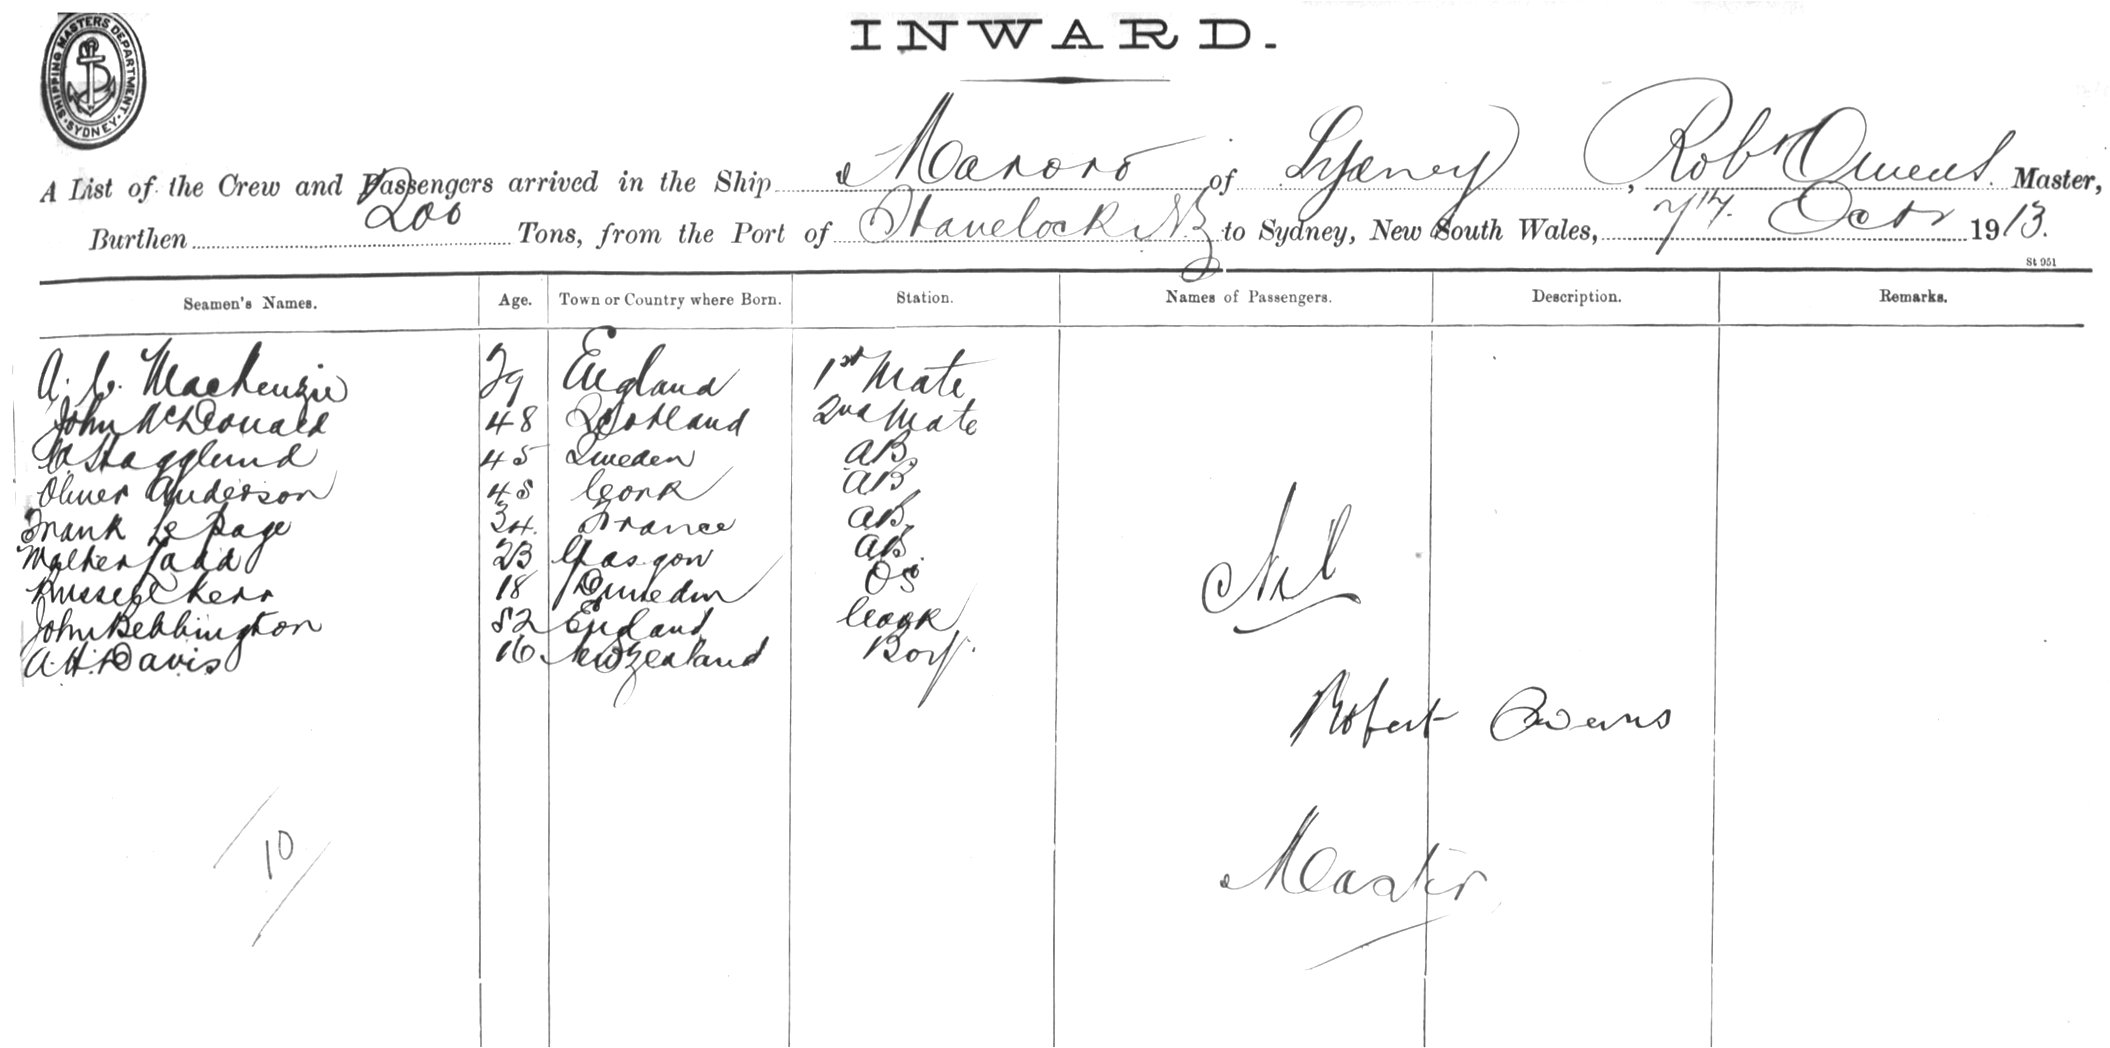 INWARD.
SHIPPING MASTERS DEPARTMENT
SYDNEY
A List of the Crew and Passengers arrived in the Ship Marоro of Sydney, Robt Owens Master,
Burthen 200 Tons, from the Port of Havelock NZ to Sydney, New South Wales, 7th Octr 1913.
St 951
Seamen's Names. Age. Town or Country where Born. Station. Names of Passengers. Description. Remarks.
A. C. MacKenzie 29 England 1st Mate
John McDonald 48 Scotland 2nd Mate
Hagglund 45 Sweden AB
Oliver Anderson 45 Cork AB
Frank Le Page 34. France AB
Walter 23 Glasgow AB
Russell Kerr 18 Dunedin OS
Nil
John Bebbington 52 England Cook
A. H. Davis 16 New Zealand Boy
Robert Owens
Master
10